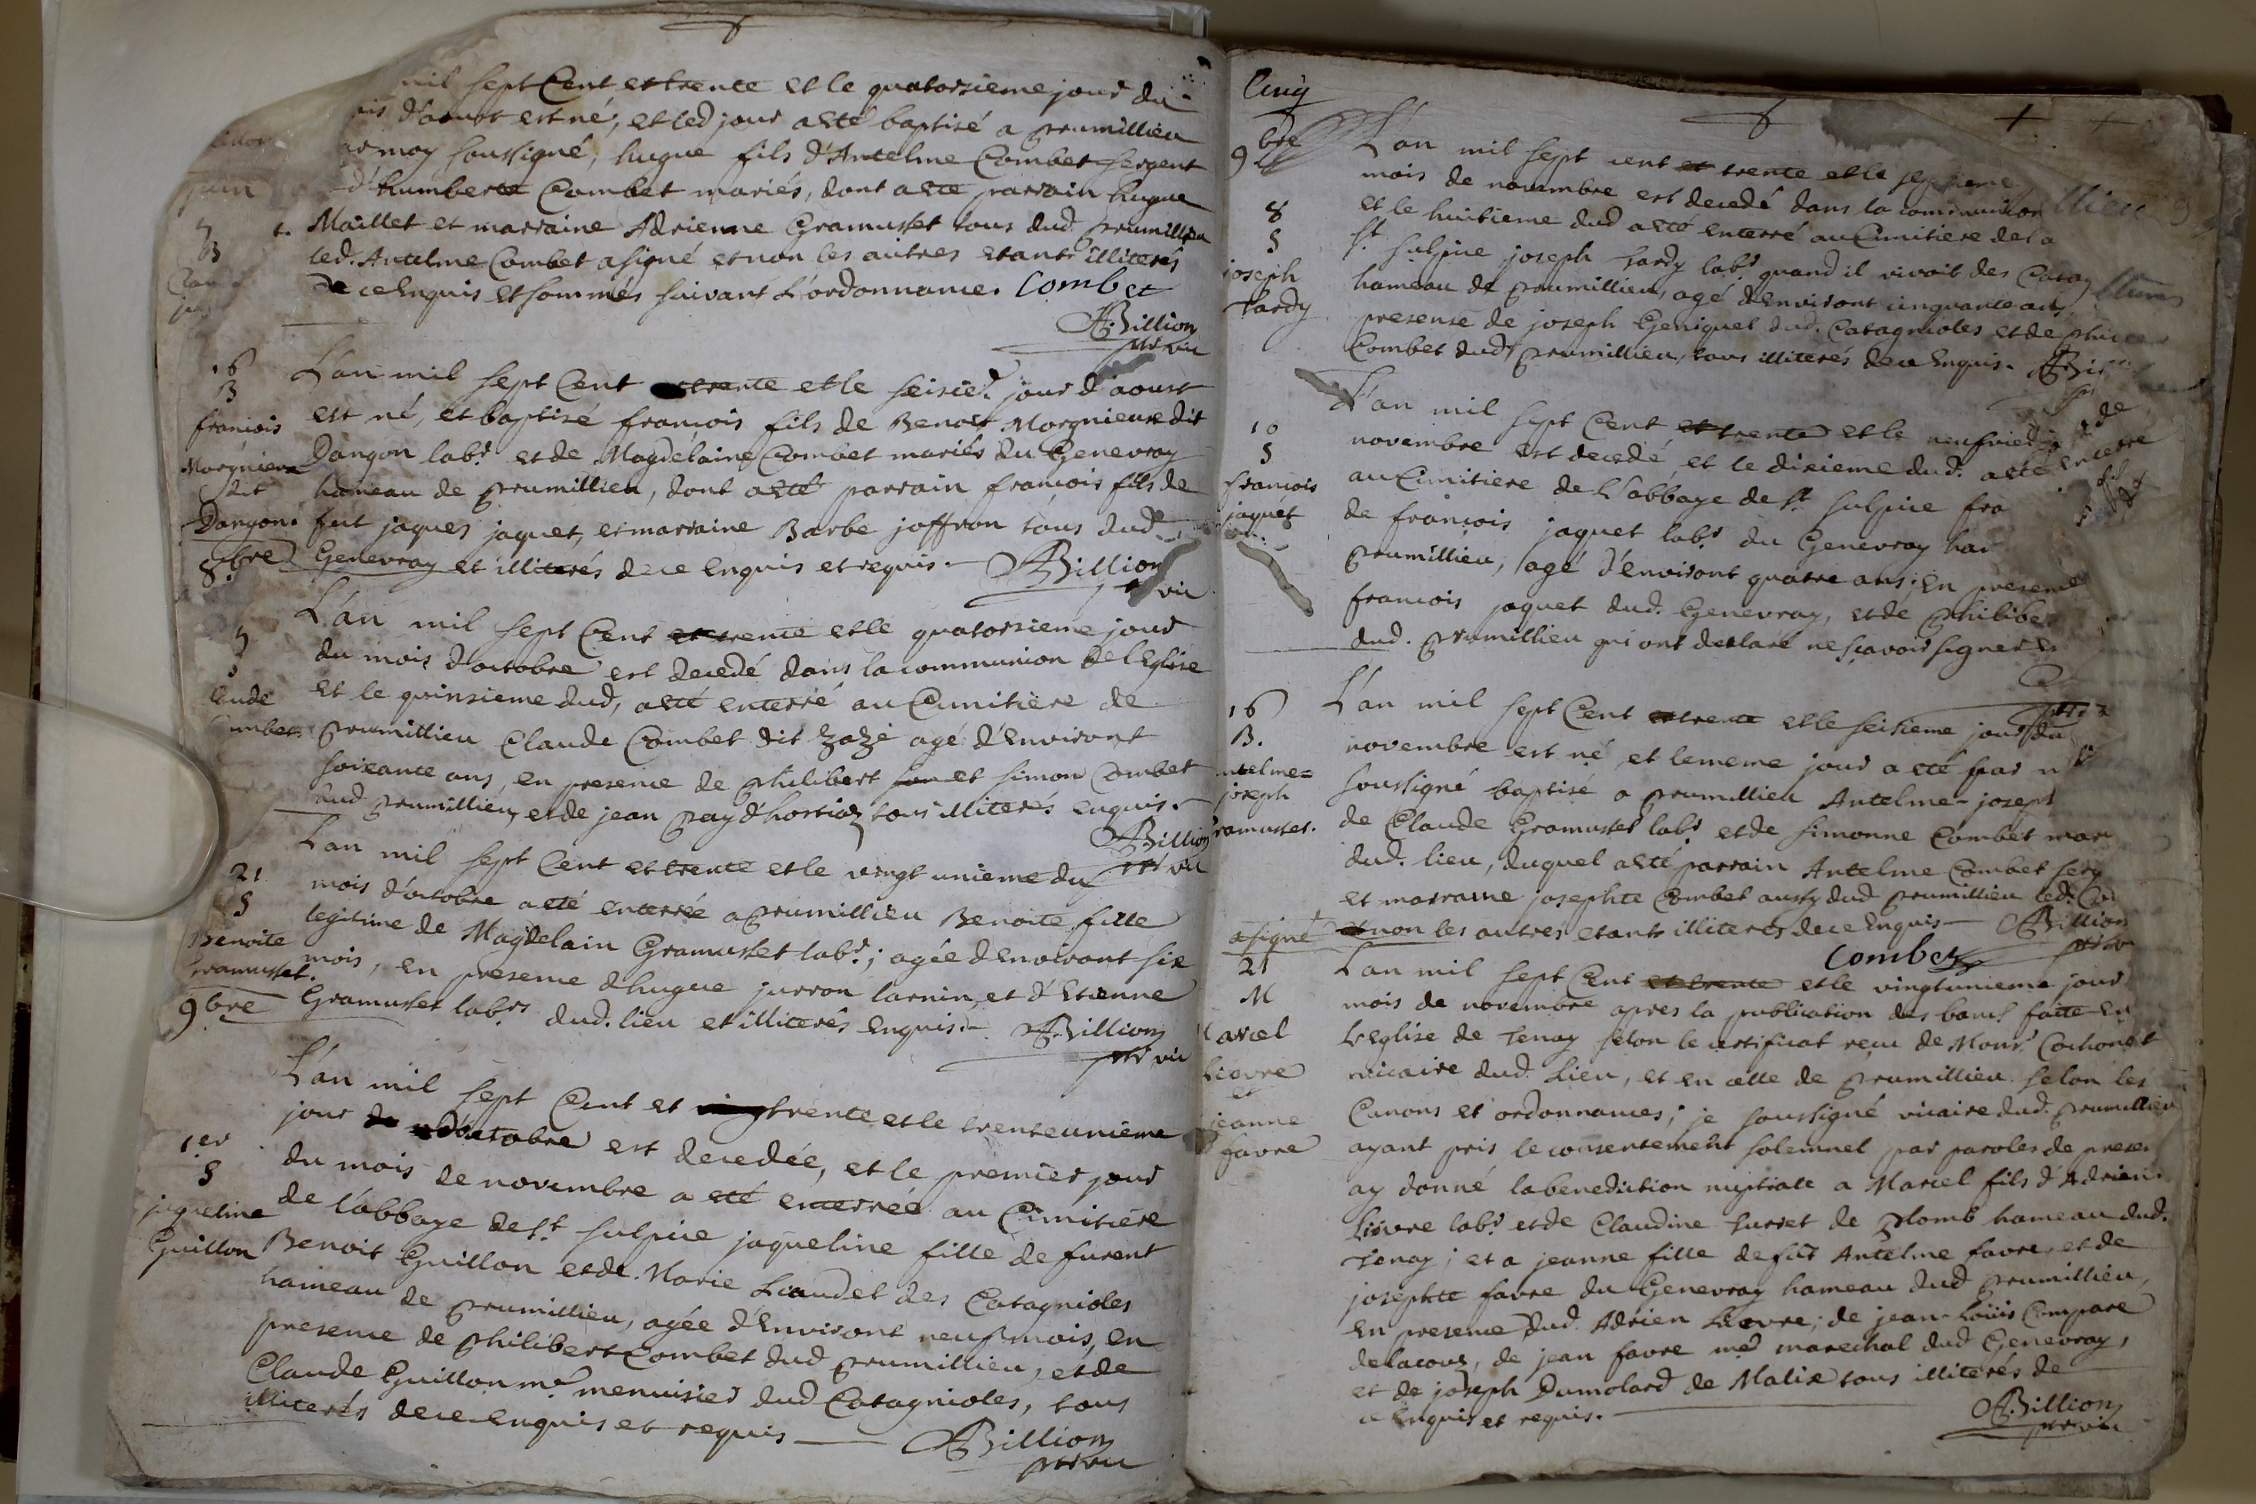 mil sept Cent et trente et le quatorzieme jour du
d'aoust est né, et led jour a esté baptisé a prumillieu
moy soussigné, hugue fils d'Antelme Combet sergent
d'humberte Combet mariés, dont a esté parrain hugue
Maillet et marraine Adrienne Gramusset tous dud. prumillieu
led. Antelme Combet a signé et non les autres etants illiterés
de ce Enquis et sommés suivant L'ordonnance. Combet
Billion
ptre vic
16
B
francois
Morgnieux
dit
Dangon.
L'an mil sept Cent et trente et le seisie.e jour d'aoust
est né, et baptisé francois fils de Benoit Morgnieux dit
Dangon lab.r et de Magdelaine Combet mariés du Genevray
hameau de prumillieu, dont a esté parrain francois fils de
feit jaques jaquet, et marraine Barbe joffron tous dud
Genevray et illiterés de ce Enquis et requis. Billion
ptre vic
8.bre
L'an mil sept Cent et trente et le quatorzieme jour
du mois d'octobre est decedé dans la communion de l'Eglise
et le quinsieme dud, a esté enterré au Cimitiere de
prumillieu Claude Combet dit zazé agé d'Environt
soixante ans, en presence de philibert et simon Combet
dud prumillieu, et de jean pay d'hostiaz tous illiterés enquis.
Billion
ptre vic
21
S
Benoite
Gramusset.
L'an mil sept Cent et trente et le vingt unieme du
mois d'octobre a eté enterrée a prumillieu Benoite fille
legitime de Magdelain Gramusset lab.r; agée d'environt six
mois, en presence d'hugue jurron larnin, et d'Etienne
Gramusset lab.rs dud. lieu et illiterés enquis. Billion
ptre vic
9bre
1.er
S
jaqueline
Guillon
L'an mil sept Cent et trente et le trenteunieme
jour d'octobre est decedée, et le premier jour
du mois de novembre a eté enterrée au Cimitiere
de l'abbaye de s.t sulpice jaqueline fille de furent
Benoit Guillon et de Marie Liaudet des Catagnioles
hameau de prumillieu, agée d'Environt neuf mois, en
presence de philibert Combet dud prumillieu, et de
Claude Guillon m.e menuisier dud Catagnioles, tous
illiterés de ce enquis et requis Billion
ptre vic
Cinq
9bre
8
S
joseph
tardy
L'an mil sept cent et trente et le septieme
mois de novembre est decedé dans la communion
et le huitieme dud a eté enterré au Cimitiere de la
s.t sulpice joseph tardy lab.r quand il vivoit des Catag
hameau de prumillieu, agé d'Environt cinquante ans
presense de joseph Geniquet dud. Catagnioles et de
Combet dud prumillieu, tous illiterés de ce Enquis.
10
S
francois
jaquet
L'an mil sept Cent et trente et le neufvie
novembre est decedé, et le dixieme dud. a eté enterré
au Cimitiere de L'abbaye de s.t sulpice fra
de francois jaquet lab.r du Genevray ha
prumillieu, agé d'environt quatre ans; En presence
francois jaquet dud. Genevray, et de philibe
dud. prumillieu qui ont declaré ne sçavoir signer
16
B.
Antelme=
joseph
Gramusset.
L'an mil sept Cent et trente et le seisieme jour du
novembre est né et le meme jour a eté par
soussigné baptisé a prumillieu Antelme-joseph
de Claude Gramusset lab.r et de simonne Combet mar
dud. lieu, duquel a eté parrain Antelme Combet serg
et marraine josephte Combet aussy dud prumillieu led. Com
a signé et non les autres etants illiterés de ce Enquis Billion
Combet ptre vic
21
M
Marcel
Lievre
et
jeanne
favre
L'an mil sept Cent et trente et le vingtunieme jour
mois de novembre apres la publication des bancs faite en
L'Eglise de Tenay selon le certificat reçu de Monsr Cochonat
vicaire dud. Lieu, et en celle de prumillieu selon les
Canons et ordonnances; je soussigné vicaire dud. prumillieu
ayant pris le consentement solemnel par paroles de presen
ay donné la benediction nuptiale a Marcel fils d'Adrien
Lievre lab.r et de Claudine surset de plomb hameau dud.
Tenay; et a jeanne fille de fut Antelme favre, et de
josephte favre du Genevray hameau dud prumillieu,
En presence dud. Adrien Lievre; de jean-Loüis Compare
delacoux, de jean favre me marechal dud Genevray,
et de joseph Dumolard de Malix tous illiterés de
ce enquis et requis. Billion
ptre vic